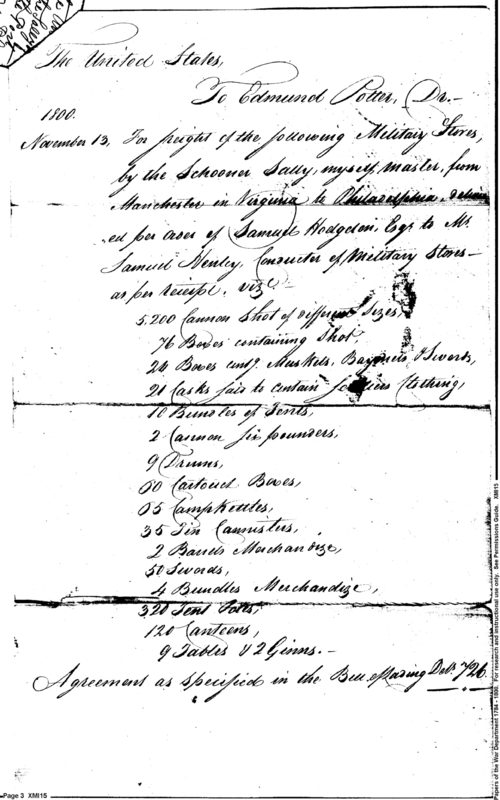 The United States,
To Edmund Potter, Dr.—
1800.
November 13, For freight of the following Military Stores,
by the Schooner Sally, myself master, from
Manchester in Virginia to Philadelphia, deliver
ed per order of Samuel Hodgdon, Esqr to Mr.
Samuel Henley, Conductor of Military Stores—
as per receipt. vizt—
5,200 Cannon Shot of different Sizes,
76 Boxes containing Shot,
24 Boxes contg. Muskets, Bayonets & Swords,
21 Casks said to contain Soldiers Clothing,
10 Bundles of Tents,
2 Cannon six pounders,
9 Drums,
Cartouch Boxes,
Campkettles,
35 Tin Cannisters,
2 Barrels Merchandize,
50 Swords,
4 Bundles Merchandize,
320 Tent Poles,
120 Canteens,
9 Tables & 2 Ginns.—
Agreement as specified in the Bill of Lading Dolls. 726.
Page 3 XMI15
Papers of the War Department 1784 - 1800. For research and instructional use only. See Permissions Guide. XMI15